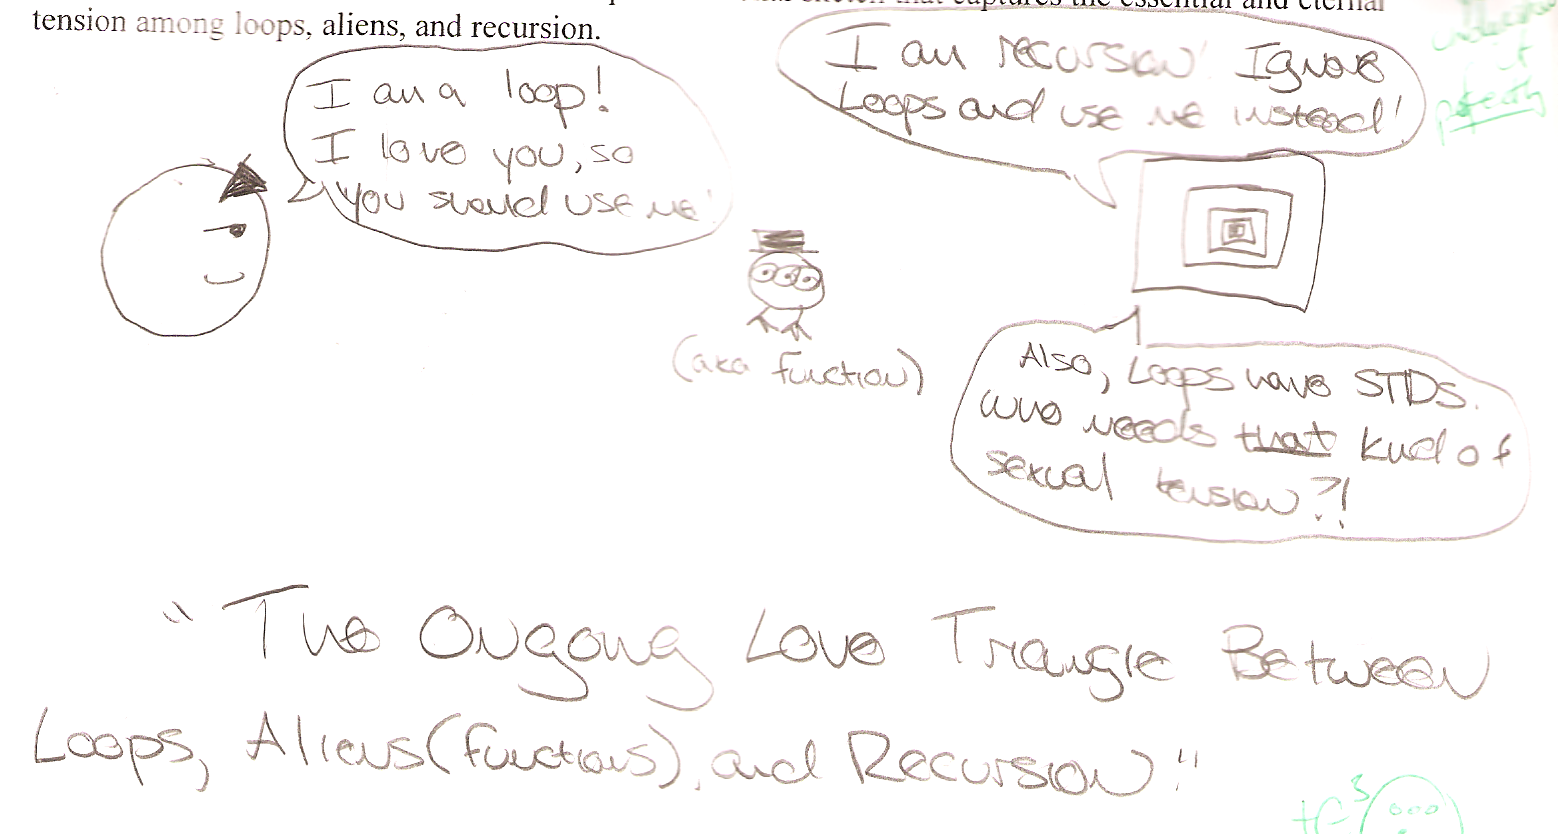 sketch that captures the essential and eternal
tension among loops, aliens, and recursion.
I am a loop!
I love you, so
you should use me!
I am recursion! Ignore
Loops and use me instead!
(aka function)
Also, Loops have STDs.
Who needs that kind of
sexual tension?!
"The Ongoing Love Triangle Between
Loops, Aliens (functions), and Recursion"
it
perfectly